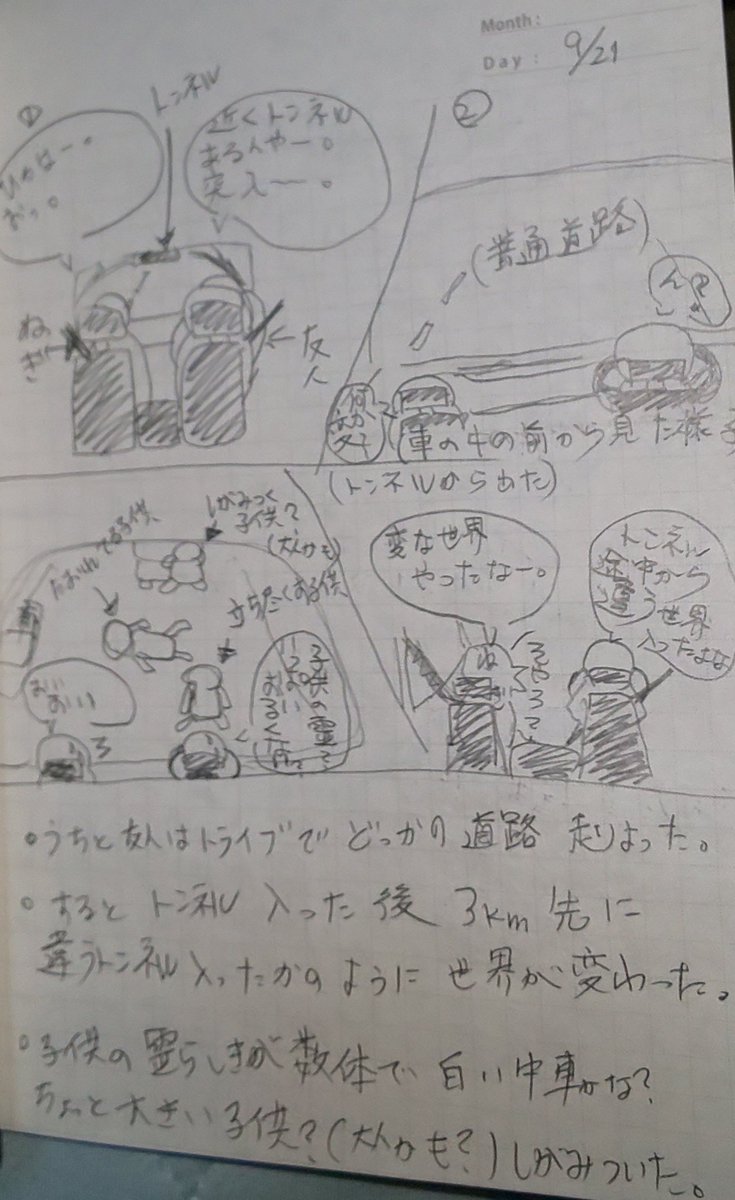 Month:
Day: 9/21
①
トンネル
ひゃはー。
おっ。
近くトンネル
あるんやー。
突入ー。
ねぎ
友人
②
(普通道路)
ん?
何か変
(車の中の前から見た様子
しがみつく
子供?
(大人かも)
たおれてる子供
立ち尽くす子供
おい
おいい
子供の霊?
(トンネルから出た)
変な世界
やったなー。
トンネル
途中から
違う世界
入ったよな
・うちと友人はドライブで どっかの 道路 走りよった。
・すると トンネル 入った後 3km 先に
違うトンネル入ったかのように 世界が変わった。
・子供の霊らしきが 数体で 白い中車かな?
ちょっと大きい子供?(大人かも?)しがみついた。